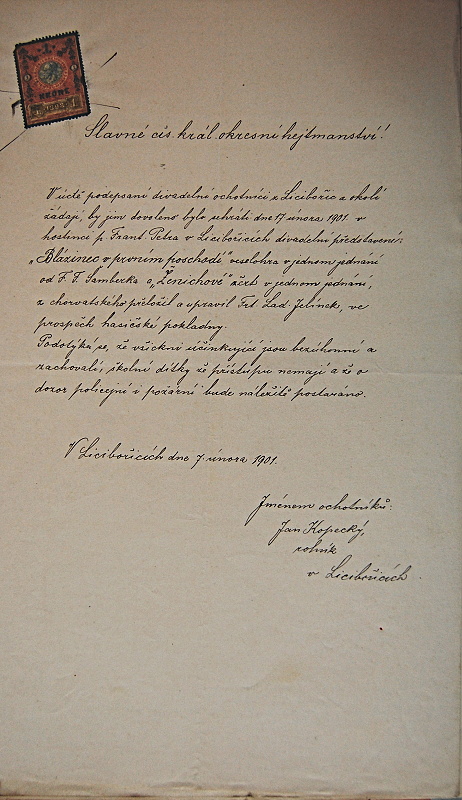 1
KRONE
1898
Slavné cís. král. okresní hejtmanství!
V úctě podepsaní divadelní ochotníci z Licibořic a okolí
žádají, by jim dovoleno bylo sehráti dne 17 února 1901. v
hostinci p. Frant. Petra v Licibořicích divadelní představení:
„Blázinec v prvním poschodí" veselohra v jednom jednání
od F. F. Šamberka a „Ženichové" žert v jednom jednání,
z chorvatského přeložil a upravil Frt. Lad. Jelínek, ve
prospěch hasičské pokladny.
Podotýká se, že všickni účinkující jsou bezúhonní a
zachovalí, školní dítky že přístupu nemají a že o
dozor policejní i požární bude náležitě postaráno.
V Licibořicích dne 7. února 1901.
Jménem ochotníků:
Jan Kopecký,
rolník
v Licibořicích.